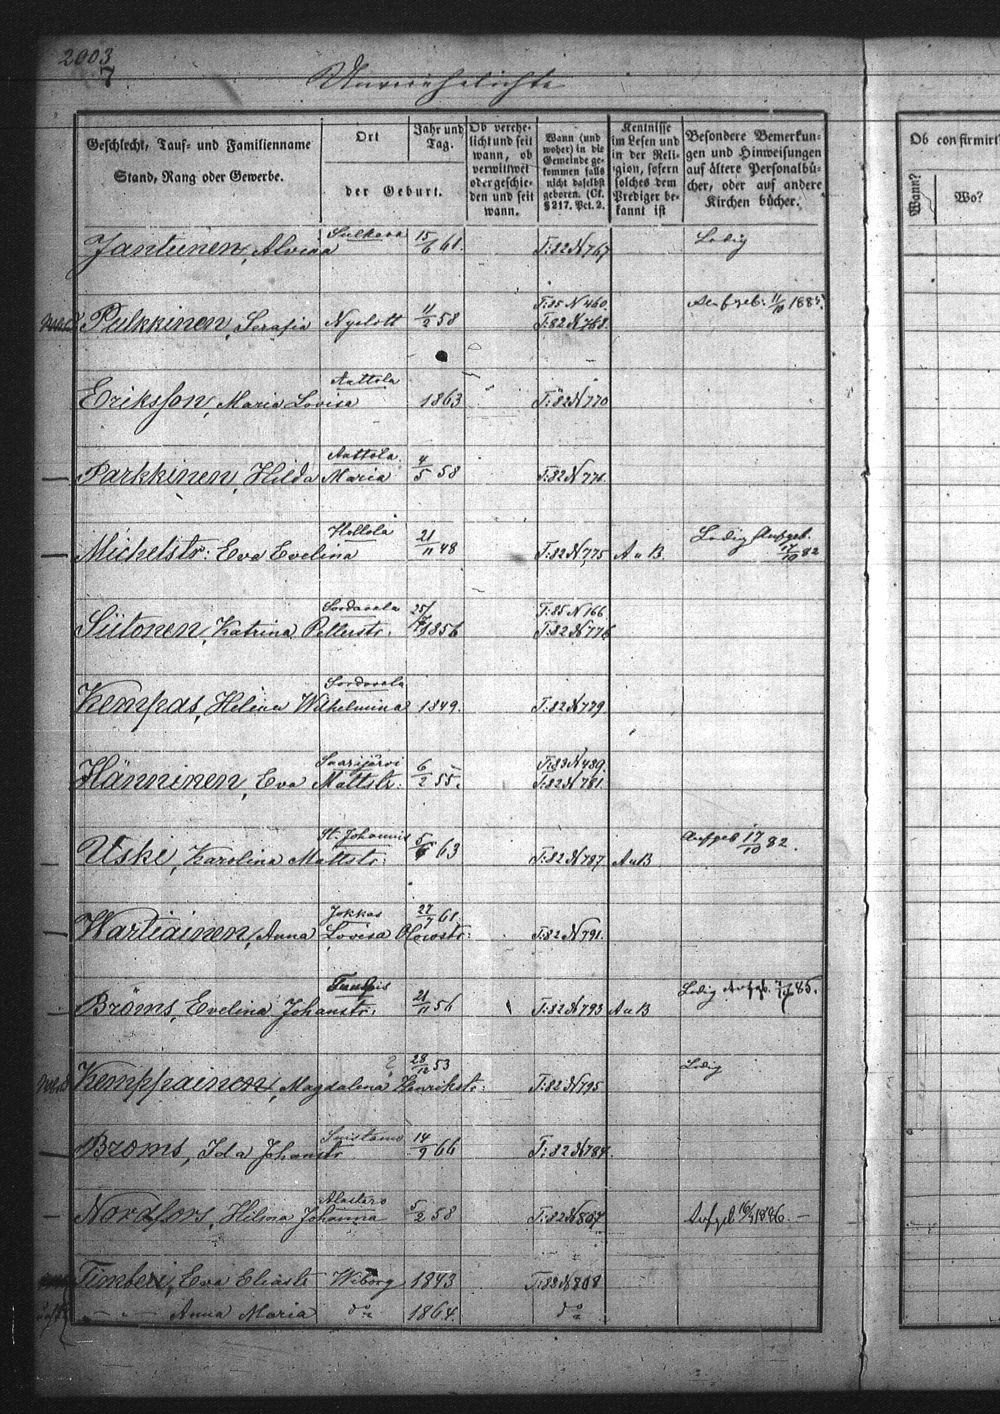 2003
7
Unverehelichte
Geschlecht, Tauf- und Familienname
Stand, Rang oder Gewerbe.
Ort
der Geburt.
Jahr und Tag.
Ob verehe-
licht und seit
wann, ob
verwittwet
oder geschie-
den und seit
wann.
Wann (und
woher) in die
Gemeinde ge-
kommen falls
nicht daselbst
geboren. (Cf.
§ 217. Pct. 2.
Kentnisse
im Lesen und
in der Reli-
gion, sofern
solches dem
Prediger be-
kannt ist
Besondere Bemerkun-
gen und Hinweisungen
auf ältere Personalbü-
cher, oder auf andere
Kirchen bücher.
Ob confirmirt
Wann?
Wo?
Jantunen, Alvina Sulkava 15/6 61. T:82 N 767 Ledig
Pulkkinen, Serafia Nyslott 11/2 58 T:85 N 460. T:82 N 768. Aufgeb: 11/10 188
Eriksson, Maria Lovisa Aattola 1863 T:82 N 770
Parkkinen, Hilda Maria Aattola 4/5 58 T:82 N 771.
Michelstr: Eva Evelina Hollola 21/11 48 T:82 N 775 A u B. Ledig Aufgeb. 17/10 82
Siitonen, Katrina Petterstr. Sordavala 25/ 1856 T:85 N 166 T:82 N 776
Kempas, Helena Wilhelmina Sordavala 1849. T:82 N 779
Hänninen, Eva Mattstr: Saarijärvi 6/2 55. T:83 N 439. T:82 N 781.
Uski, Karolina Mattstr: St. Johannis 5/6 63 T:82 N 787 A u B Aufgeb 17/10 82.
Hartiainen, Anna Lovisa Olovstr: Jokkas 27/7 61. T:82 N 791.
Bröms, Evelina Johanstr. 21/11 56 T:82 N 793 A u B Ledig Aufgb. 85.
Kemppainen, Magdalena Henrikstr: ? 28/12 53 T:82 N 795 Ledig
Broms, Ida Johanstr Suistamo 14/9 66 T:82 N 784
Nordfors, Hilma Johanna Alastaro 5/2 58 T:82 N 807 Aufgeb 1886. —
Timberi, Eva Eliastr Wiborg 1843 T:83 N 808
— " — Anna Maria do 1864. do